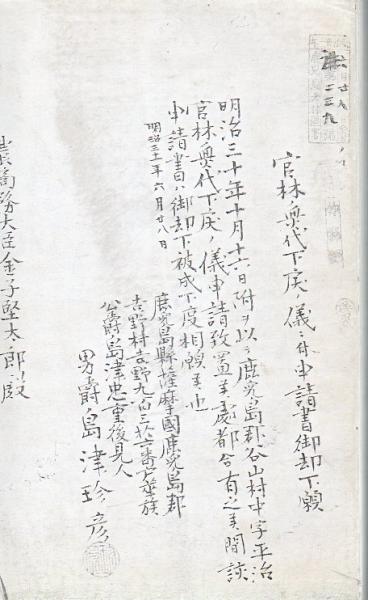 官林無代下戻ノ儀ニ付申請書御却下願
明治三十年十月十六日附ヲ以テ鹿児島郡谷山村中字平治
官林無代下戻ノ儀申請致置候處都合有之候間該
申請書ハ御却下被成下度相願候也
明治三十一年六月廿八日
鹿児島縣薩摩國鹿児島郡
吉野村吉野九百三十六番戸華族
公爵島津忠重後見人
男爵島津珍彦
農商務大臣金子堅太郎殿